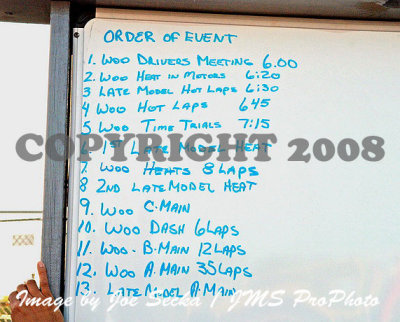 ORDER OF EVENT
1. WOO DRIVERS MEETING 6:00
2. WOO HEAT IN MOTORS 6:20
3 LATE MODEL HOT LAPS 6:30
4 WOO HOT LAPS 645
5 WOO TIME TRIALS 7:15
6 1ST LATE MODEL HEAT
COPYRIGHT 2008
7. WOO HEATS 8 LAPS
8 2ND LATE MODEL HEAT
9. WOO C.MAIN
10. WOO DASH 6 LAPS
11. WOO. B.MAIN 12 LAPS
12. WOO A.MAIN 35 LAPS
13. LATE MODEL A.MAIN
Image by Joe Secka / JMS ProPhoto